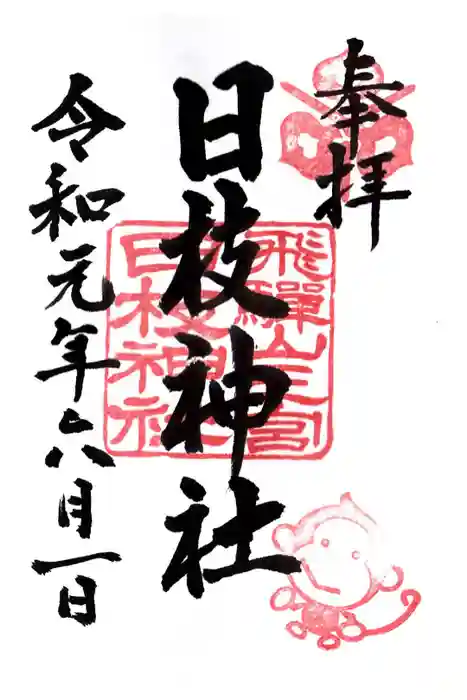 奉拝
日枝神社
令和元年六月一日
飛驒山王宮
日枝神社